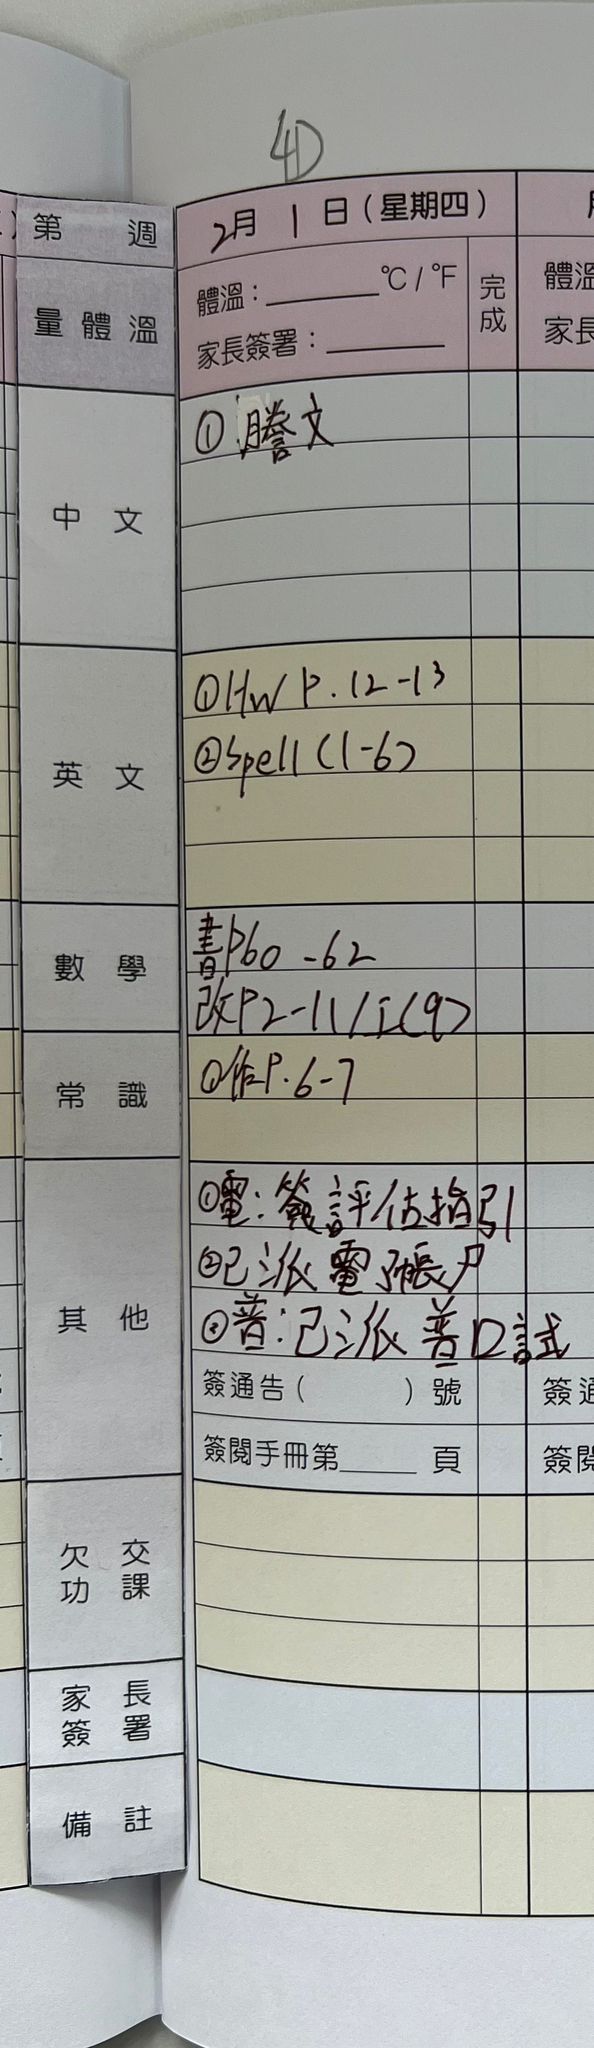 4D
第 週
2月 1 日(星期四)
量體溫
體溫:______℃/℉
家長簽署:______
完成
體溫
家長
中文
① 謄文
英文
①HW P.12-13
②Spell (1-6)
數學
書P60-62
改P2-11/工(9)
常識
①作P.6-7
其他
①電:簽評估指引
②已派電子帳戶
③普:已派普口試
簽通告( )號
簽通
簽閱手冊第____頁
簽閱
欠交功課
家長簽署
備註